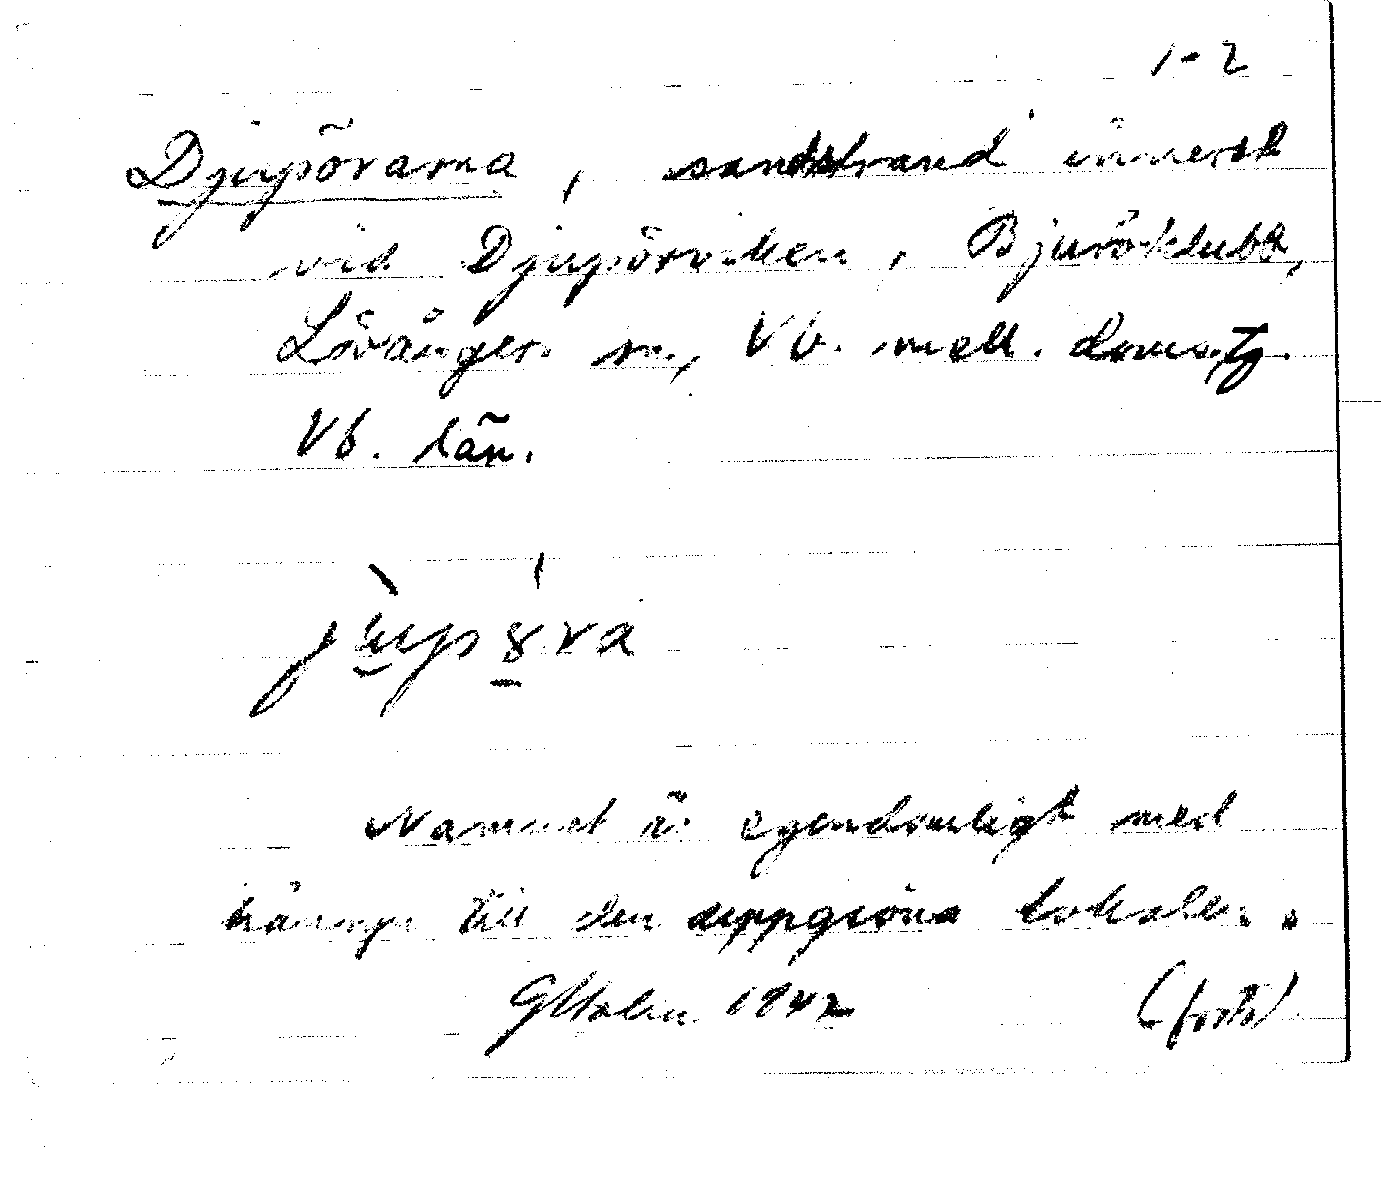 1-2
Djupörarna, sandstrand innerst
vid Djupörviken, Bjuröklubb,
Lövånger sn, Vb. mell. doms.tg
Vb. län.
Namnet är egendomligt med
hänsyn till den uppgivna lokalen.
GHolm 1942 (forts)